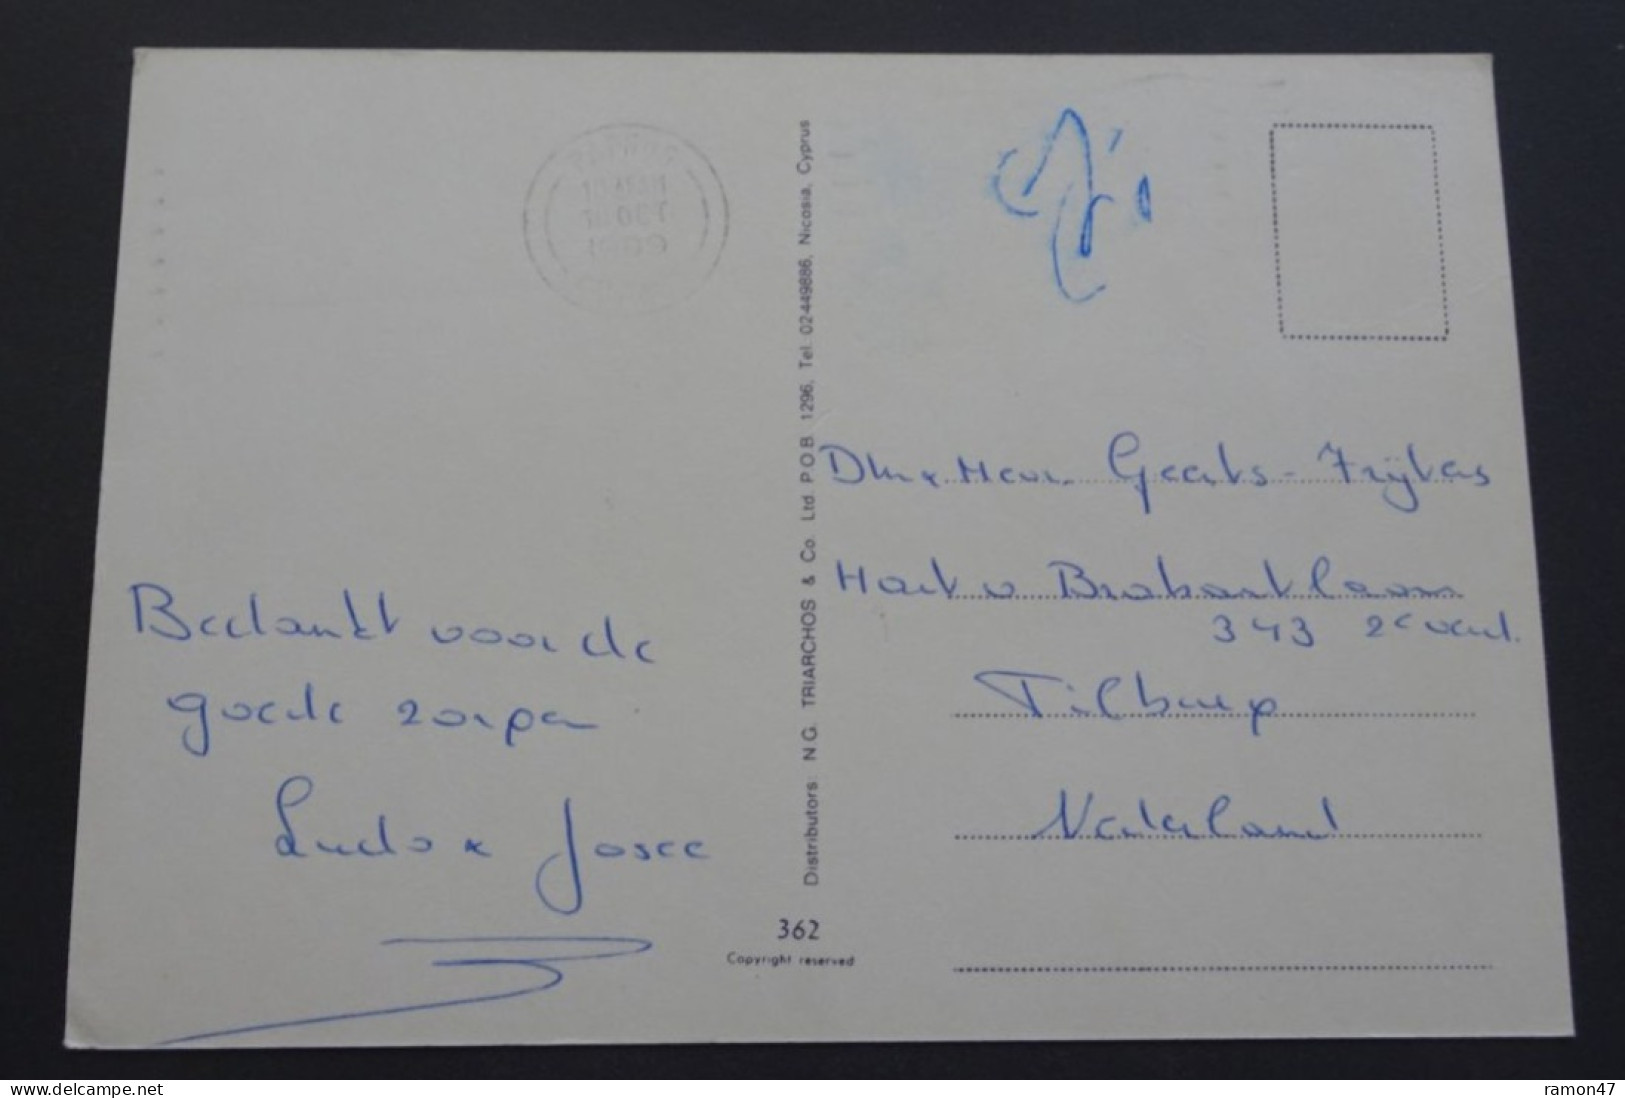 Bedankt voor de
goede zorgen
Ludo & Josee
Distributors: N.G. TRIARCHOS & Co. Ltd P.O.B. 1296, Tel. 02-449886, Nicosia, Cyprus
362
Copyright reserved
Geerts-Frijters
Hart v Brabantlaan
343 2e verd.
Tilburg
Nederland
www.delcampe.net
ramon47